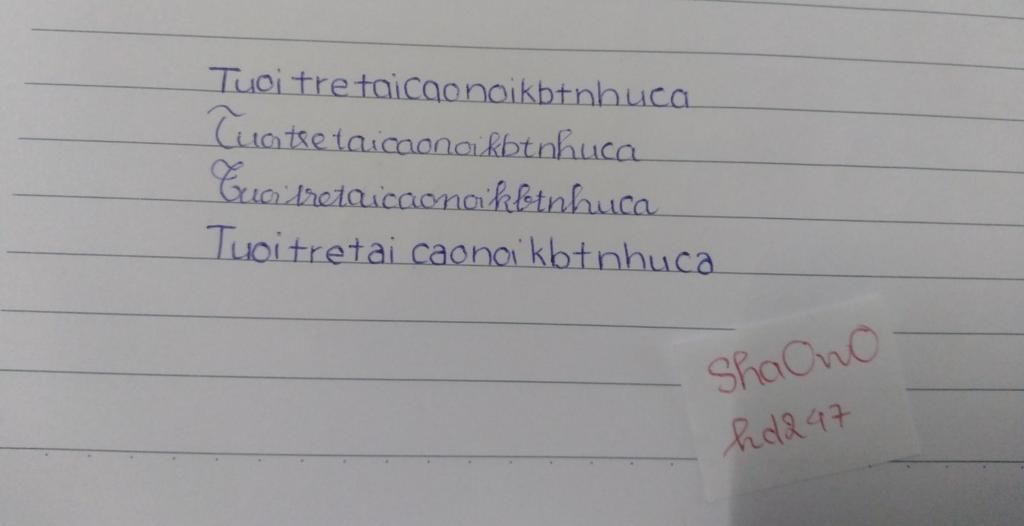 Tuoitretaicaonoikbtnhuca
Tuoitretaicaonoikbtnhuca
Tuoitretaicaonoikbtnhuca
Tuoitretai caonoikbtnhuca
ShaOwO
hd247